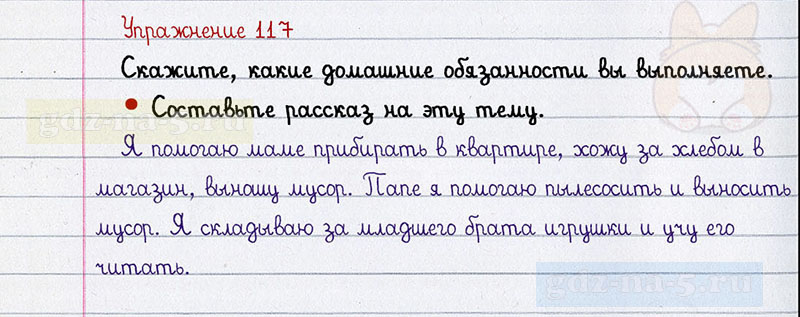 Упражнение 117
Скажите, какие домашние обязанности вы выполняете.
• Составьте рассказ на эту тему.
gdz-na-5.ru
Я помогаю маме прибирать в квартире, хожу за хлебом в
магазин, вынашу мусор. Папе я помогаю пылесосить и выносить
мусор. Я складываю за младшего брата игрушки и учу его
читать.
gdz-na-5.ru